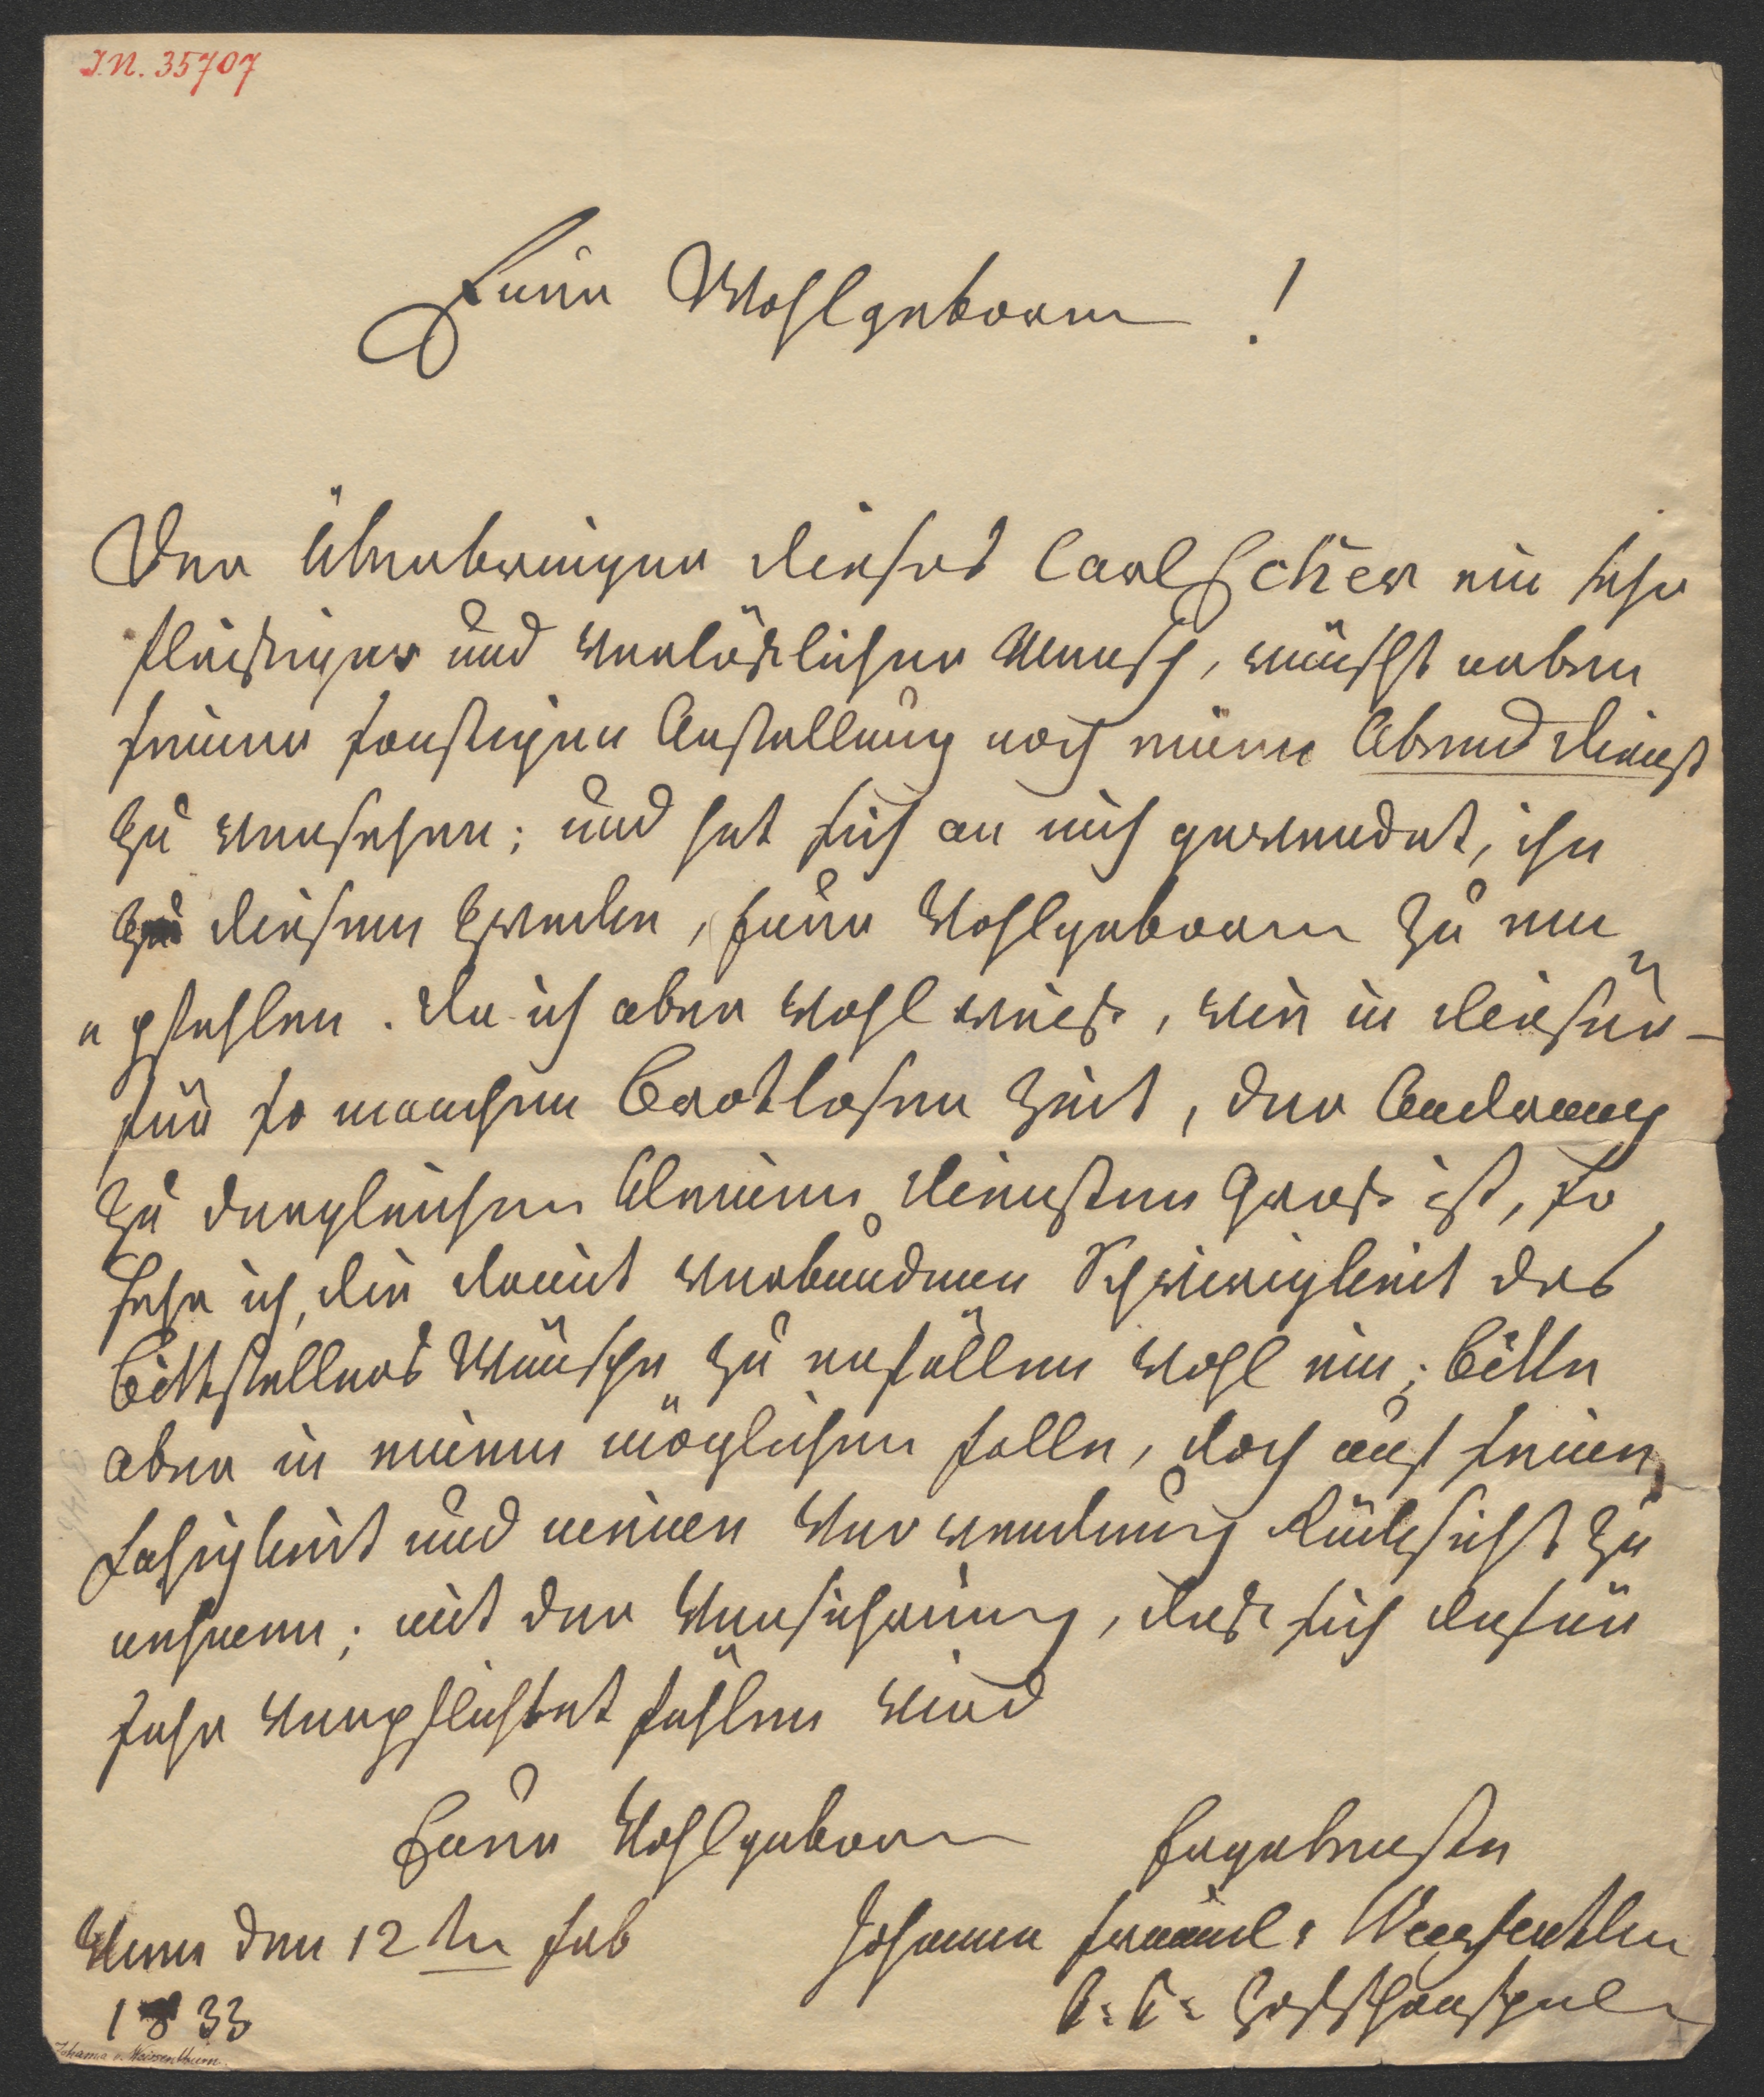 I.N. 35707
Euer Wohlgeborn !
Der Überbringer dieses Carl Escher ein sehr
fleißiger und verläßlicher Mensch, wünscht neben
seiner sonstigen Anstellung noch einen Abend dienst
zu versehen; und hat sich an mich gewendet, ihn
zu diesem Zwecke, Euer Wohlgeborn zu em
"pfehlen. Da ich aber wohl weiß, wie in dieser –
für so manchen Brotlosen Zeit, der Andrang
zu dergleichen kleinen diensten Groß ist, so
sehe ich, die damit verbundnen Schwierigkeit des
Bittstellers Wünsche zu erfüllen wohl ein; bitte
aber in einem möglichen falle, doch auf seine
Fähigkeit und meinen Verwendung Rücksicht zu
nehmen; mit der Versicherung, daß sich dafür
sehr verpflichtet fühlen wird
Euer Wohlgeborn Ergebenste
Wien den 12 ten feb Johanna Weissenthurn
1833 k: k: Hofschauspiel
Johanna v. Weissenthurn.